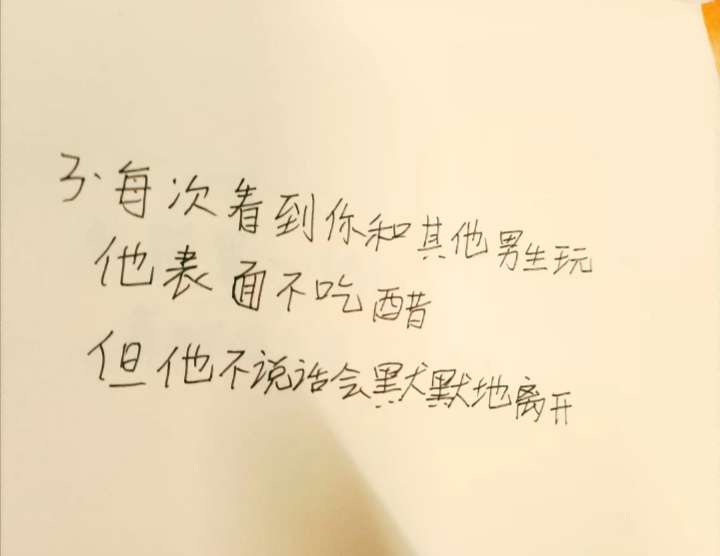 3.每次看到你和其他男生玩
他表面不吃醋
但他不说话会默默地离开